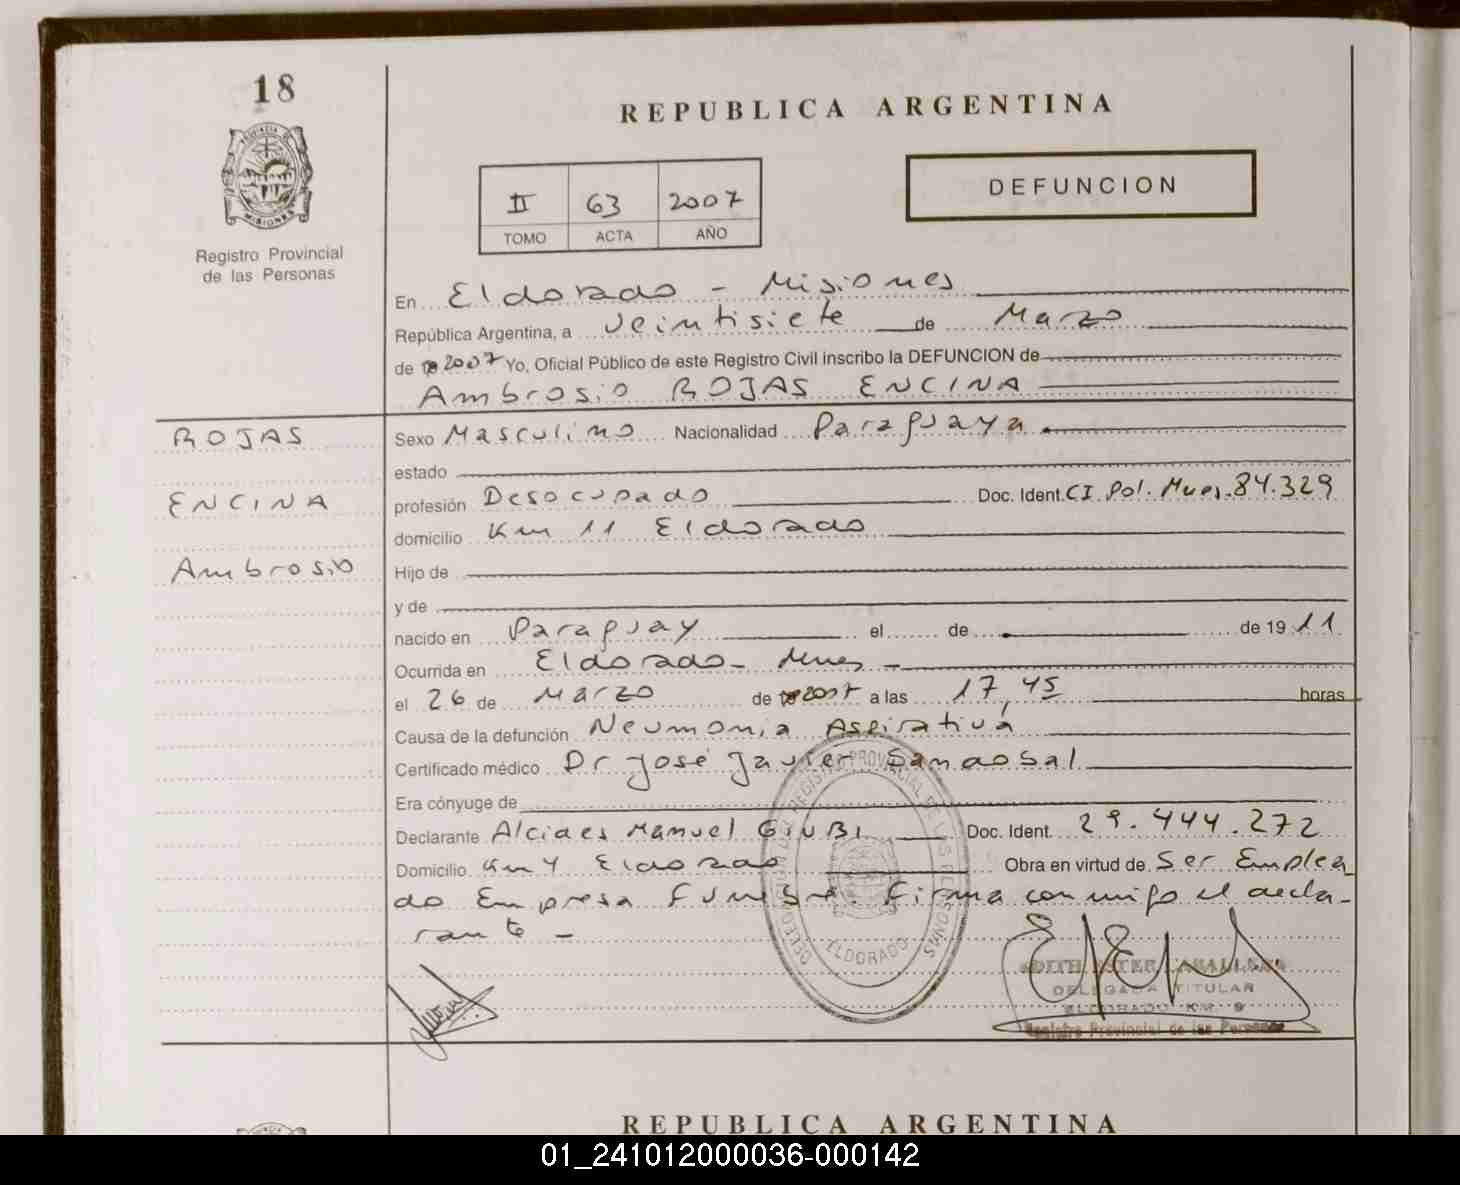 18
REPUBLICA ARGENTINA
PROVINCIA DE
MISIONES
Registro Provincial
de las Personas
II 63 2007
TOMO ACTA AÑO
DEFUNCION
En Eldorado - Misiones
República Argentina, a veintisiete de Marzo
de 2007 Yo, Oficial Público de este Registro Civil inscribo la DEFUNCION de
Ambrosio ROJAS ENCINA
ROJAS
ENCINA
Ambrosio
Sexo Masculino Nacionalidad Paraguaya
estado
profesión Desocupado Doc. Ident. CI. Pol. Mnes. 84.329
domicilio Km 11 Eldorado
Hijo de
y de
nacido en Paraguay el de de 1911
Ocurrida en Eldorado - Mnes -
el 26 de Marzo de 2007 a las 17,45 horas
Causa de la defunción Neumonia Aspirativa
Certificado médico Dr José Javier Sandoval
Era cónyuge de
Declarante Alcides Manuel GIUBI Doc. Ident. 29.444.272
Domicilio Km 4 Eldorado Obra en virtud de Ser Emplea
do Empresa Funebre. Firma conmigo el decla-
rante -
DELEGACION DEL REGISTRO PROVINCIAL DE LAS PERSONAS
ELDORADO
EDITH ESTER
DELEGADA TITULAR
ELDORADO KM. 9
Registro Provincial de las Personas
REPUBLICA ARGENTINA
01_241012000036-000142